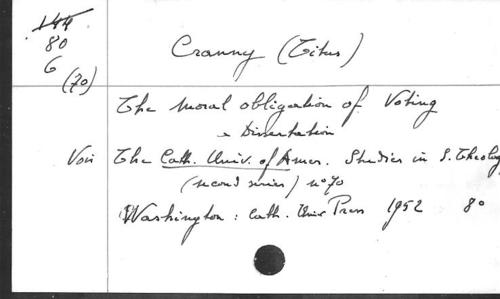 144
80
6
(70)
Cranny (Titus)
The moral obligation of Voting
Dissertation
Voir The Cath. Univ. of Amer. Studies in S. Theology
(second series) n° 70
Washington : Cath. Univ Press 1952 8°